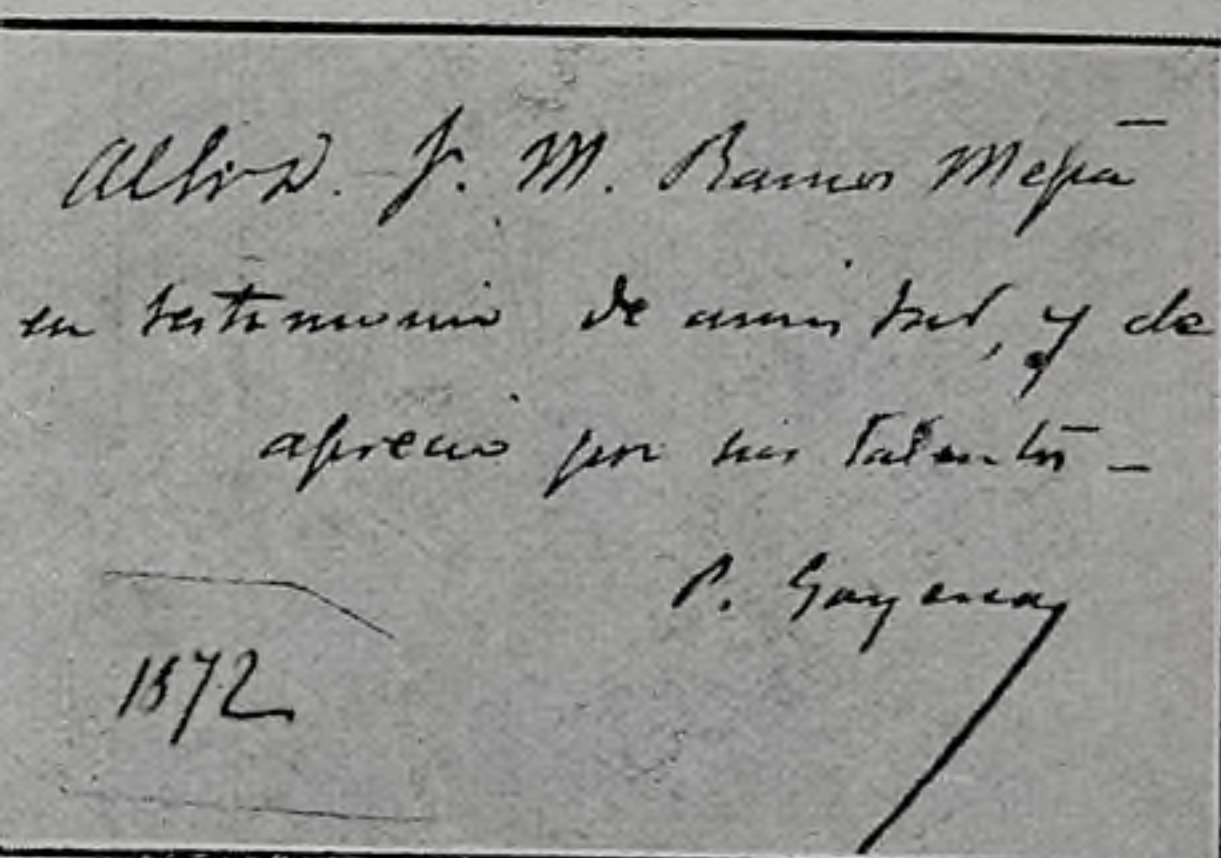 Al Sr. D. J. M. Ramos Mejía
en testimonio de amistad, y de
aprecio por sus talentos —
P. Goyena
1872